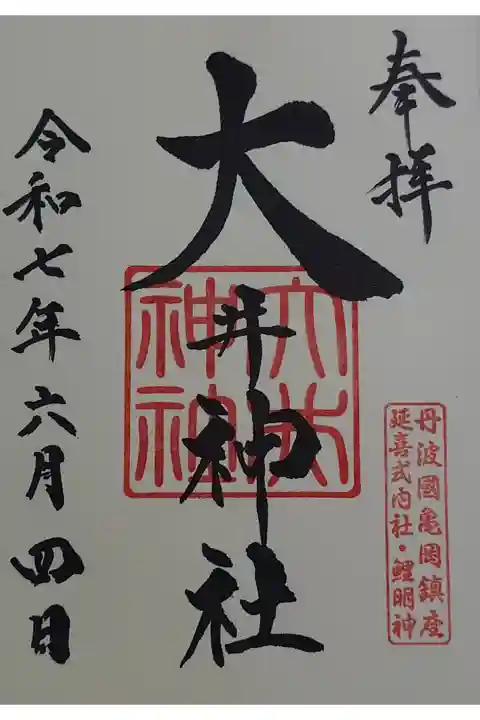 奉拝
丹波國亀岡鎮座
延喜式内社・鯉明神
大井神社
大井
神社
令和七年六月四日